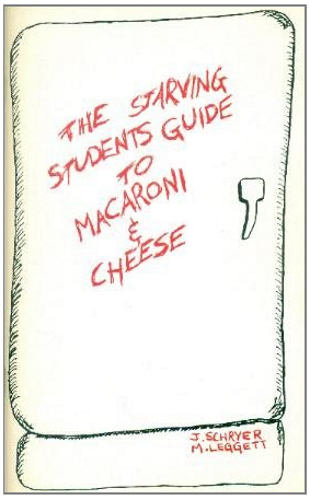 THE STARVING
STUDENTS GUIDE
TO
MACARONI
&
CHEESE
J. SCHRYER
M. LEGGETT